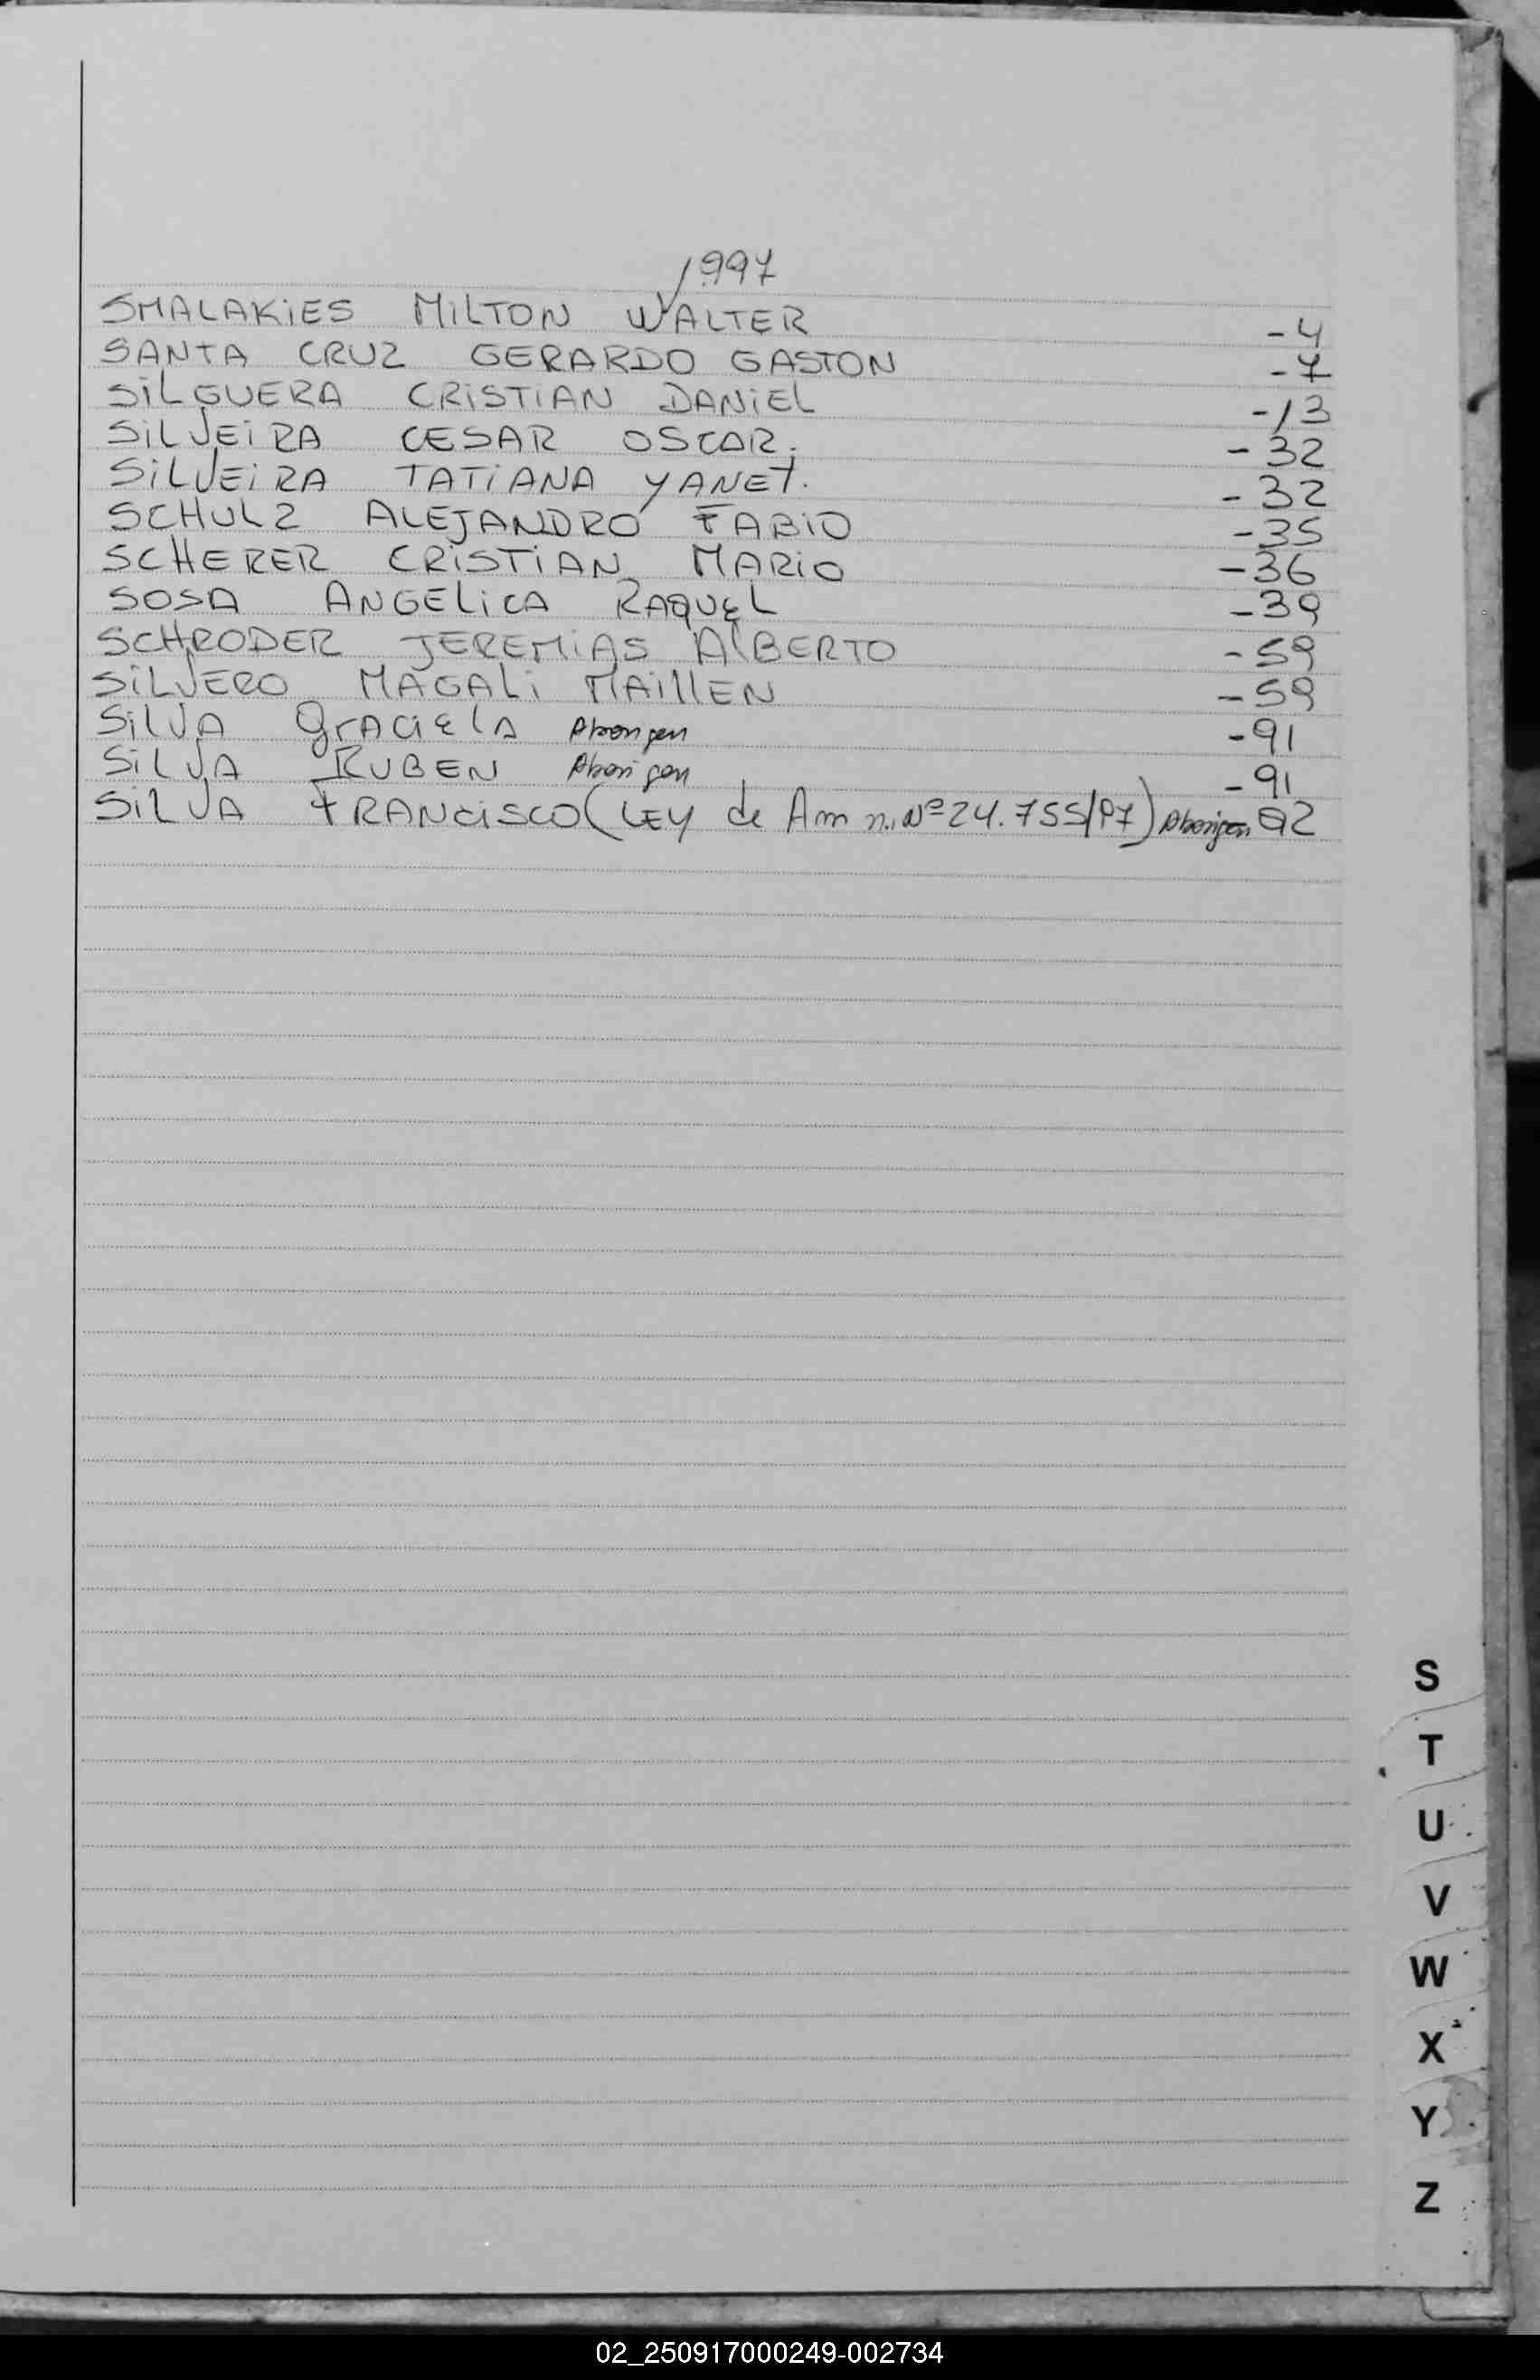 1997
SMALAKiES MiLTON WALTER -4
SANTA CRUZ GERARDO GASTON -7
SiLGUERA CRiSTiAN DANiEL -13
SiLVEiRA CESAR OSCAR. -32
SiLVEiRA TATiANA YANET. -32
SCHULZ ALEJANDRO FABiO -35
SCHERER CRiSTiAN MARiO -36
SOSA ANGELiCA RAQUEL -39
SCHRODER JEREMiAS AlBERTO -59
SiLVERO MAGALi MAillEN -59
SiLVA GrACiElA Aborigen -91
SiLVA RUBEN Aborigen -91
SiLVA FRANCiSCO (LEY de Amn. Nº 24.755/97) Aborigen 92
S
T
U
V
W
X
Y
Z
02_250917000249-002734